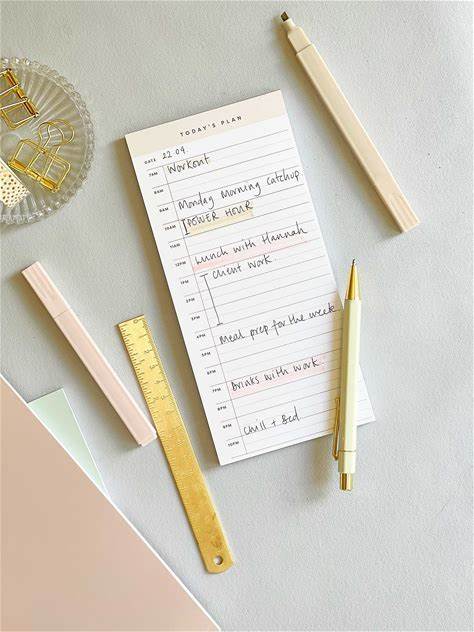 TODAY'S PLAN
DATE 22.04.
7AM Workout
8AM
9AM Monday Morning Catchup
10AM POWER HOUR
11AM
12PM Lunch with Hannah
1PM Client work
2PM
3PM
4PM Meal prep for the week
5PM
6PM
7PM Drinks with work
8PM
9PM Chill + Bed
10PM